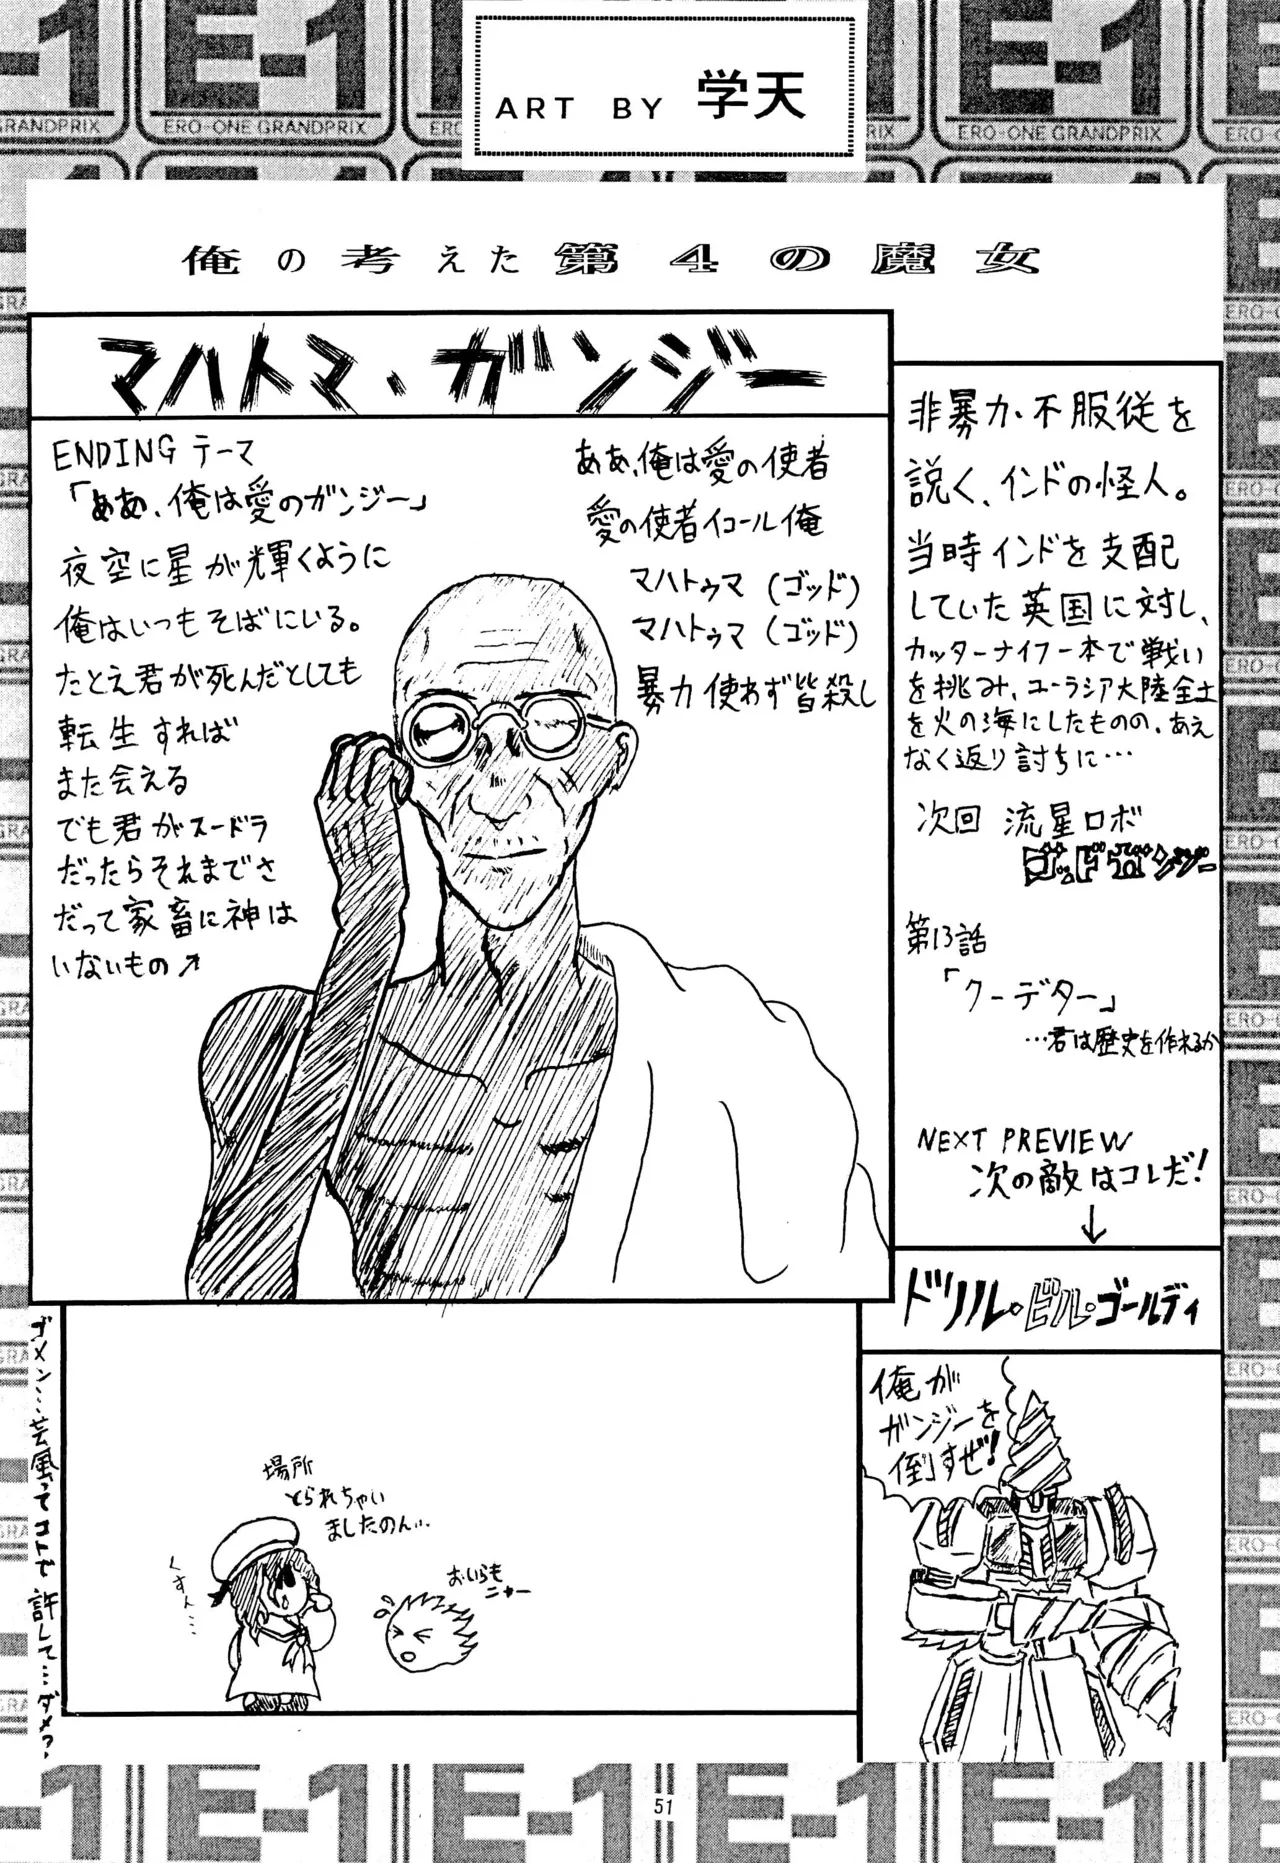 ART BY 学天
E-1
ERO-ONE GRANDPRIX
俺の考えた第4の魔女
マハトマ・ガンジー
ENDING テーマ
「ああ、俺は愛のガンジー」
夜空に星が輝くように
俺はいつもそばにいる。
たとえ君が死んだとしても
転生すれば
また会える
でも君がスードラ
だったらそれまでさ
だって家畜に神は
いないもの↗
ああ、俺は愛の使者
愛の使者イコール俺
マハトゥマ (ゴッド)
マハトゥマ (ゴッド)
暴力使わず皆殺し
非暴力・不服従を
説く、インドの怪人。
当時インドを支配
していた英国に対し、
カッターナイフ一本で戦い
を挑み、ユーラシア大陸全土
を火の海にしたものの、あえ
なく返り討ちに…
次回 流星ロボ
ゴッドガンジー
第13話
「クーデター」
…君は歴史を作れるか
NEXT PREVIEW
次の敵はコレだ!
↓
ドリル・ビル・ゴールディ
俺が
ガンジーを
倒すぜ!
場所
とられちゃい
ましたのん…
くすん…
おいらも
ニャー
ゴメン…芸風ってコトで許して…ダメ?
51